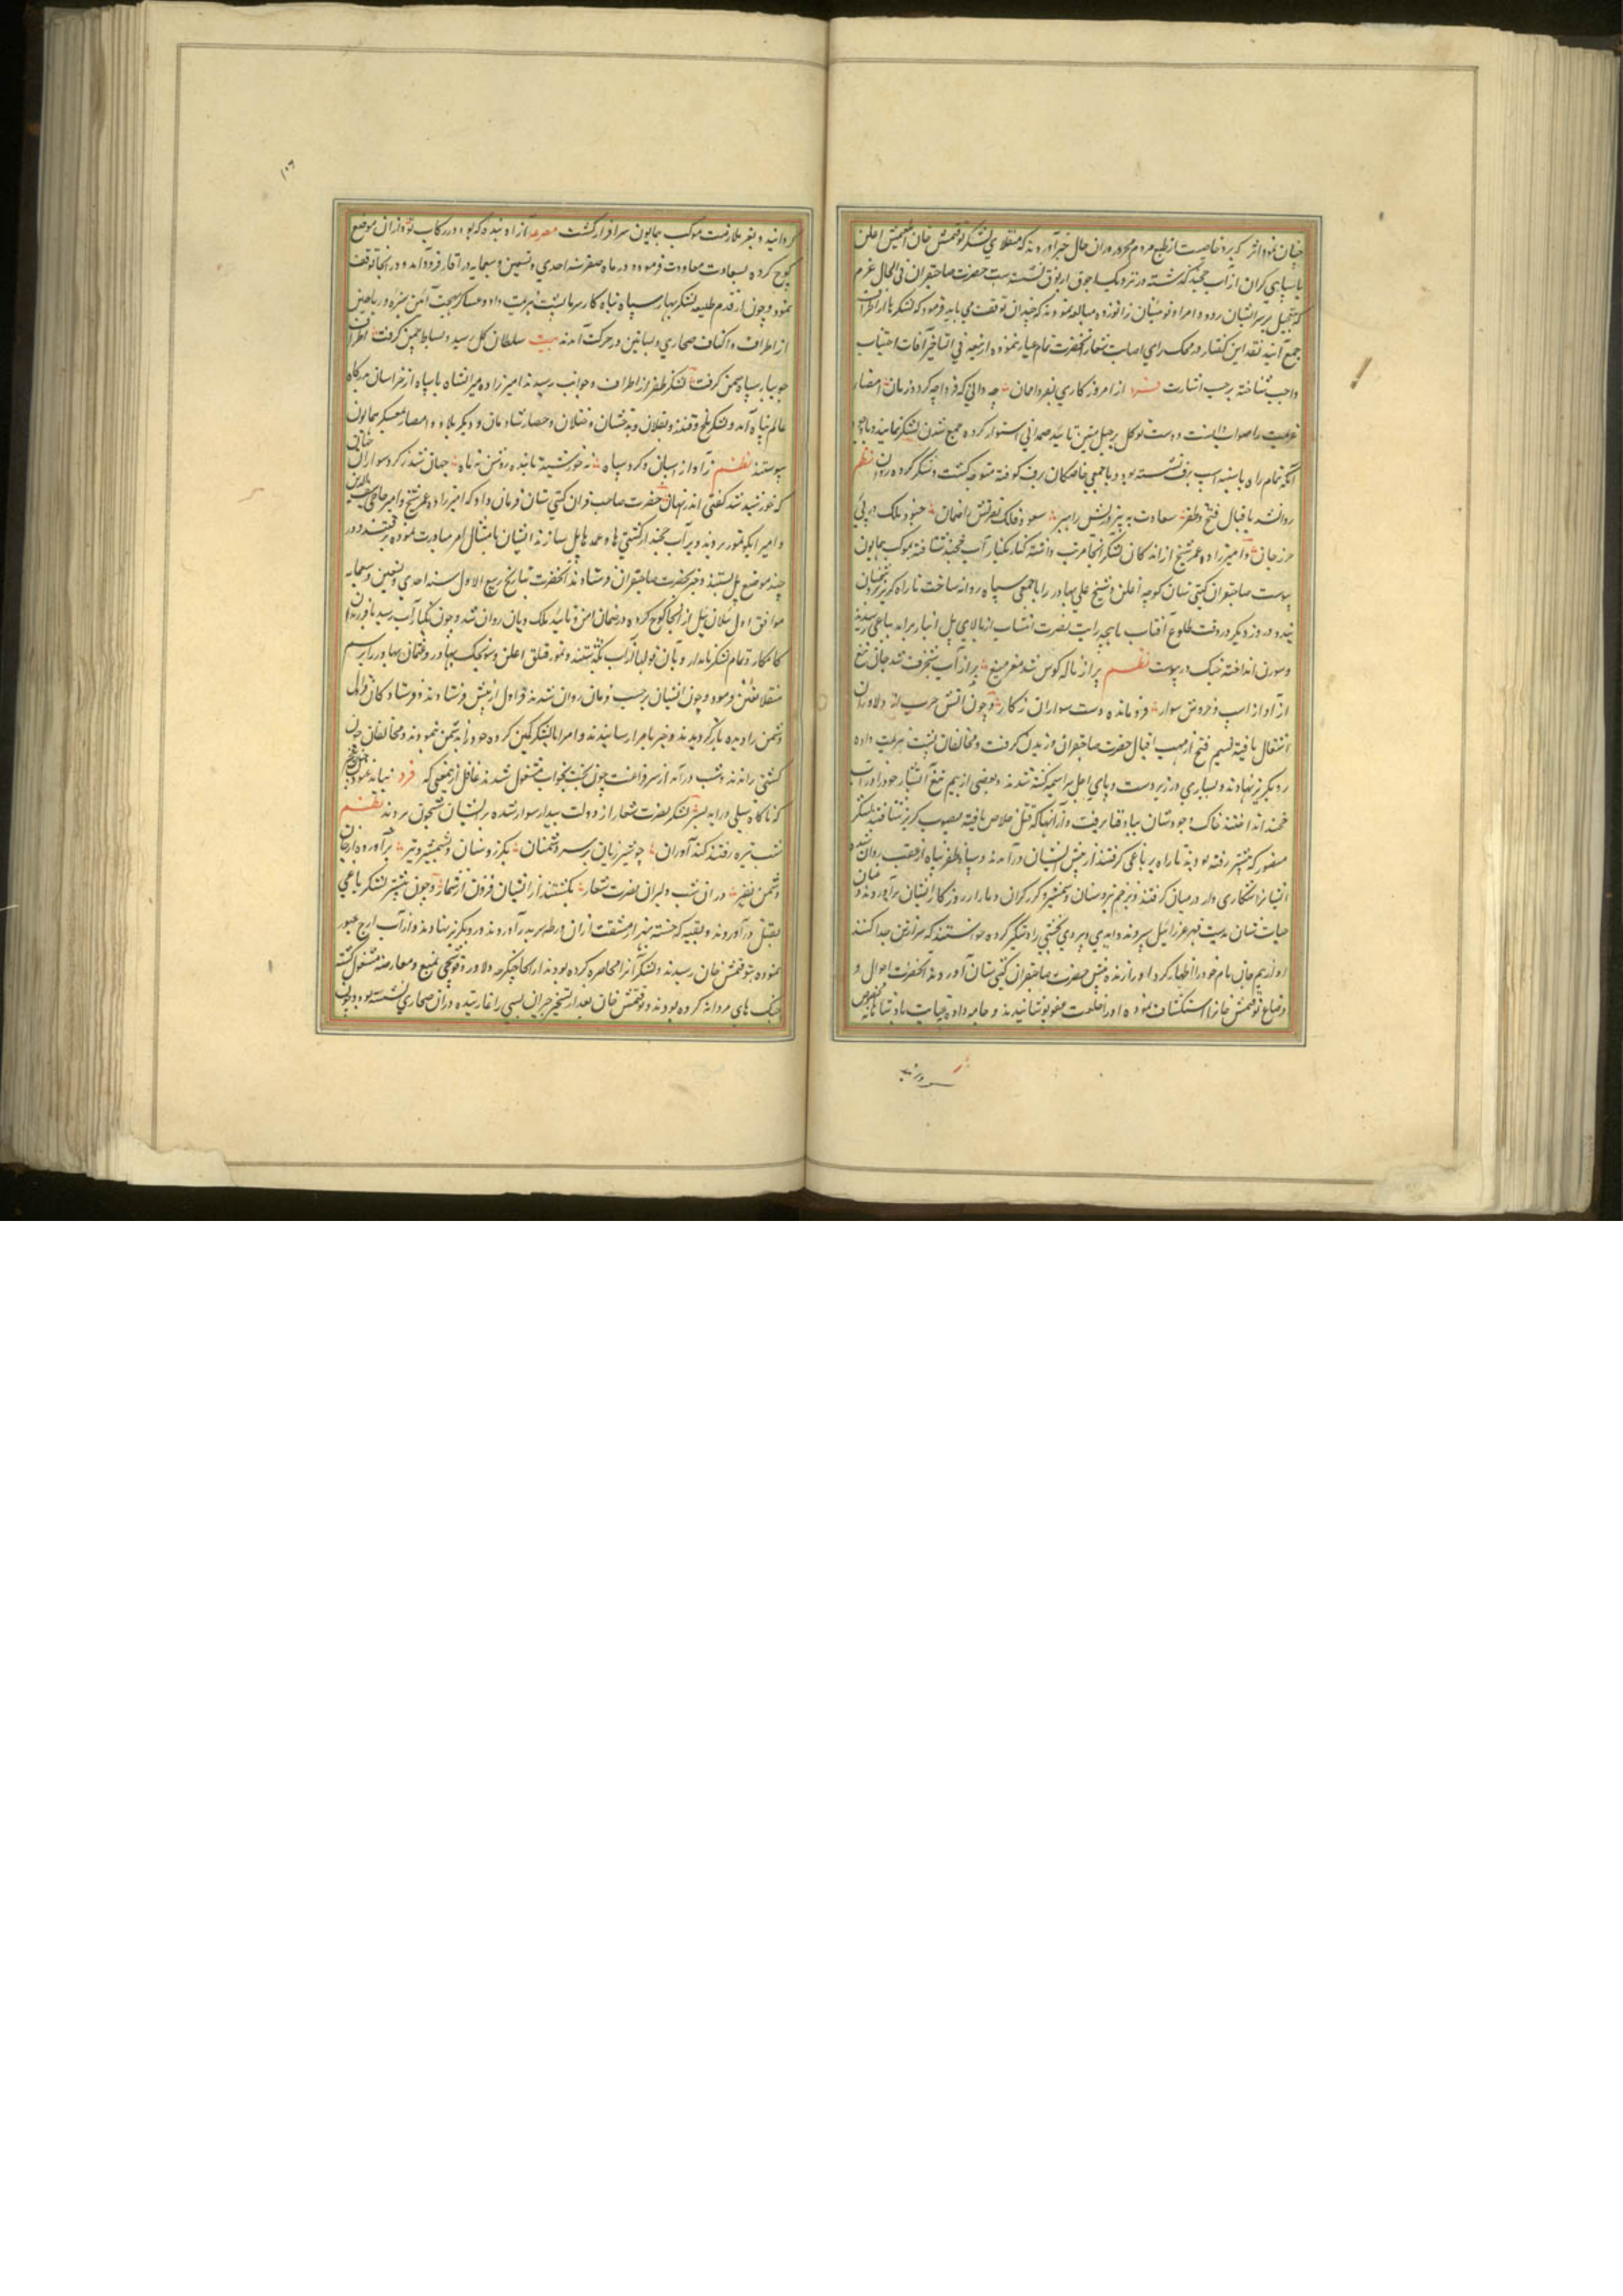 چنان نمود اثر که برد خاصیت از طبع مردم محرور در آن حال خبر آوردند که منقلای لشکر توقتمش خان ایلغمیش اغلن
با سپاهی گران از آب خجند گذشته در نزدیک اجوق ارنوق نشسته است حضرت صاحبقران فی الحال عزم
که تعجیل بر سر ایشان رود و امرا و نوئینان زانو زده مبالغه نمودند که چندان توقف می باید فرمود که لشکرها از اطراف
جمع آیند نقد این گفتار در محک رای اصابت شعار آنحضرت تمام عیار ننموده از تعبیه فی التاخیر آفات اجتناب
واجب شناخته برحسب اشارت از امروز کاری بفردا ممان چه دانی که فردا چه گردد زمان امضاء
عزیمت را صواب دانست و دست توکل بر حبل متین تائید صمدانی استوار کرده جمع شدن لشکر نپائید و با وجود
آنکه تمام راه با سینه اسب برف نشسته بود با جمعی خاصگان برف کوفته متوجه گشت و شبگیر کرده روان نظم
روان شد با قبال فتح و ظفر سعادت به پیروزیش راهبر سعود فلک نصرتش را ضمان جنود ملک در پی
حرز جان و امیرزاده عمر شیخ از اندکان لشکر آنجا مرتب داشته کنار بکنار آب خجند شتافته بموکب همایون
پیوست صاحبقران گیتی ستان کونچه اغلن و شیخ علی بهادر را با جمعی سپاه روانه ساخت تا راه گریز بر دشمنان
بندند و روز دیگر در وقت طلوع آفتاب ماهچه رایت نصرت انتساب از بالای پل انبار برآمد بیاغی رسیدند
و سورن انداخته جنگ در پیوست نظم پر از ناله کوس شد مغز میغ پر از آب شنجرف شد جان تیغ
از آواز اسب و خروش سوار فرو مانده دست سواران ز کار و چون آتش حرب از دلاوران
اشتعال یافته نسیم فتح از مهب اقبال حضرت صاحبقران وزیدن گرفت و مخالفان پشت هزیمت داده
رو بگریز نهادند و بسیاری در زیر دست و پای اجل سراسیمه کشته شدند و بعضی از بیم تیغ آتشبار خود را در آب
خجند انداختند خاک وجودشان بباد فنا برفت و از آنها که قتل خلاص یافته بصوب گریز شتافتند لشکر
منصور که پیشتر رفته بودند تا راه بر یاغی گرفتند از پیش ایشان درآمدند و سپاه ظفرپناه از عقب روان شده
ایشانرا شکاری وار در میان گرفتند و بزخم تیر و سنان و شمشیر و گرز گران دمار از روزگار ایشان برآوردند
حیات شان بدست قهر عزرائیل سپردند و ایدی بیردی بخشی را دستگیر کرده خواستند که سر از تن جدا کنند
او از بیم جان نام خود را اظهار کرد او را زنده پیش حضرت صاحبقران گیتی ستان آوردند آنحضرت احوال و
اوضاع توقتمش خانرا استکشاف نموده او را خلعت عفو پوشانیدند و جامه داده بعنایت پادشاهانه مخصوص
گردانید و بعز ملازمت موکب همایون سرافراز گشت مصرعه آزاد بنده که بود در رکاب تو و از آن موضع
کوچ کرده بسعادت معاودت فرمود و در ماه صفر سنه احدی و تسعین و سبعمایه در آقار فرود آمد و در آنجا توقف
نمود و چون از قدم طلیعه لشکر بهار سپاه تباه کار سرما پشت هزیمت داد و عساکر بهجت آئین سبزه و ریاحین
از اطراف و اکناف صحاری و بساتین در حرکت آمدند بیت سلطان گل رسید و بساط چمن گرفت اطراف
جویبار سپاه سمن گرفت لشکر ظفر از اطراف و جوانب رسیدند امیرزاده میرانشاه با سپاه از خراسان بدرگاه
عالم پناه آمد و لشکر بلخ و قندز و بقلان و بدخشان و ختلان و حصار شادمان و دیگر بلاد و امصار بمعسکر همایون
پیوستند نظم ز آواز اسپان و گرد سپاه نه خورشید تابنده روشن نه ماه جهانی شد از گرد سواران چنان
که خورشید شد گفتی اندر نهان حضرت صاحبقران گیتی ستان فرمان داد که امیرزاده عمر شیخ و امیر حاجی سیف الدین
و امیر ایکو تمور بروند و بر آب خجند از کشتی ها و عمدها پل سازند ایشان بامتثال امر مبادرت نموده برفتند و در
چند موضع پل بستند و خبر بحضرت صاحبقران فرستادند آنحضرت بتاریخ ربیع الاول سنه احدی و تسعین و سبعمایه
موافق اول ئیلان ئیل از آنجا کوچ کرده در ضمان امن و تائید ملک دیان روان شد و چون بکنار آب رسید با فرزندان
کامکار و تمام لشکر نامدار و بآن پولها از آب بگذشتند و تمور قتلق اغلن و سونجک بهادر و عثمان بهادر را برسم
منقلا تعیین فرمود و چون ایشان برحسب فرمان روان شدند قراول از پیش فرستادند و فرستادگان قراول
دشمن را دیده بازگردیدند و خبر بامرا رسانیدند و امرا با لشکر کمین کرده خود را بدشمن ننمودند و مخالفان چون
گشتی راندند و شب درآمد از سر فراغت چون بخت بخواب مشغول شدند غافل از معنی که فرد نباید غنود
که ناگاه سیلی درآید بسر لشکر نصرت شعار از دولت بیدار سوار شده بر ایشان شبخون بردند نظم
شب تیره رفتند کندآوران چو شیر ژیان بر سر دشمنان بگرز و سنان و بشمشیر و تیر برآورده از جان
دشمن نفیر در آن شب دلیران نصرت شعار بکشتند از ایشان فزون از شمار و چون بیشتر لشکر یاغی
بقتل درآوردند و بقیه که خسته بهزار مشقت از آن ورطه سر بدر آوردند رو بگریز نهادند و از آب ارج عبور
نموده بتوقتمش خان رسیدند و لشکر آنرا محاصره کرده بودند از آنجا چپگر دلاور و قوچی بمنع و معارضه مشغول گشته
جنگ های مردانه کرده بودند و توقتمش خان بعد از تسخیر حیران یسی را غارتیده در آن صحاری نشسته بود و چون